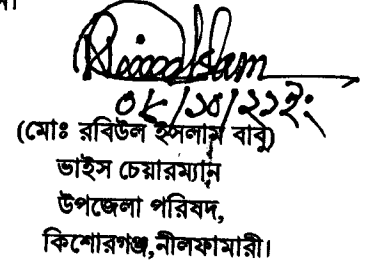 ০৮/১০/২১ইং
(মোঃ রবিউল ইসলাম বাবু)
ভাইস চেয়ারম্যান
উপজেলা পরিষদ,
কিশোরগঞ্জ,নীলফামারী।